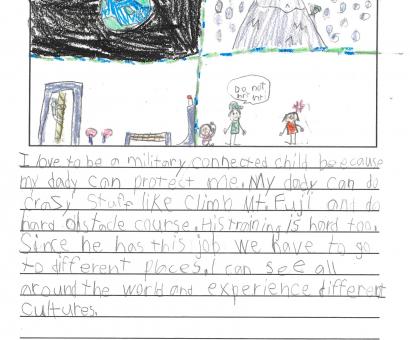 Do not
I love to be a military connected child beecause
my dady can protect me. My dady can do
crasy stuff like climb Mt. Fuji and do
hard obstacle course. His training is hard too.
Since he has this job we have to go
to different places. I can see all
around the world and experience different
cultures.